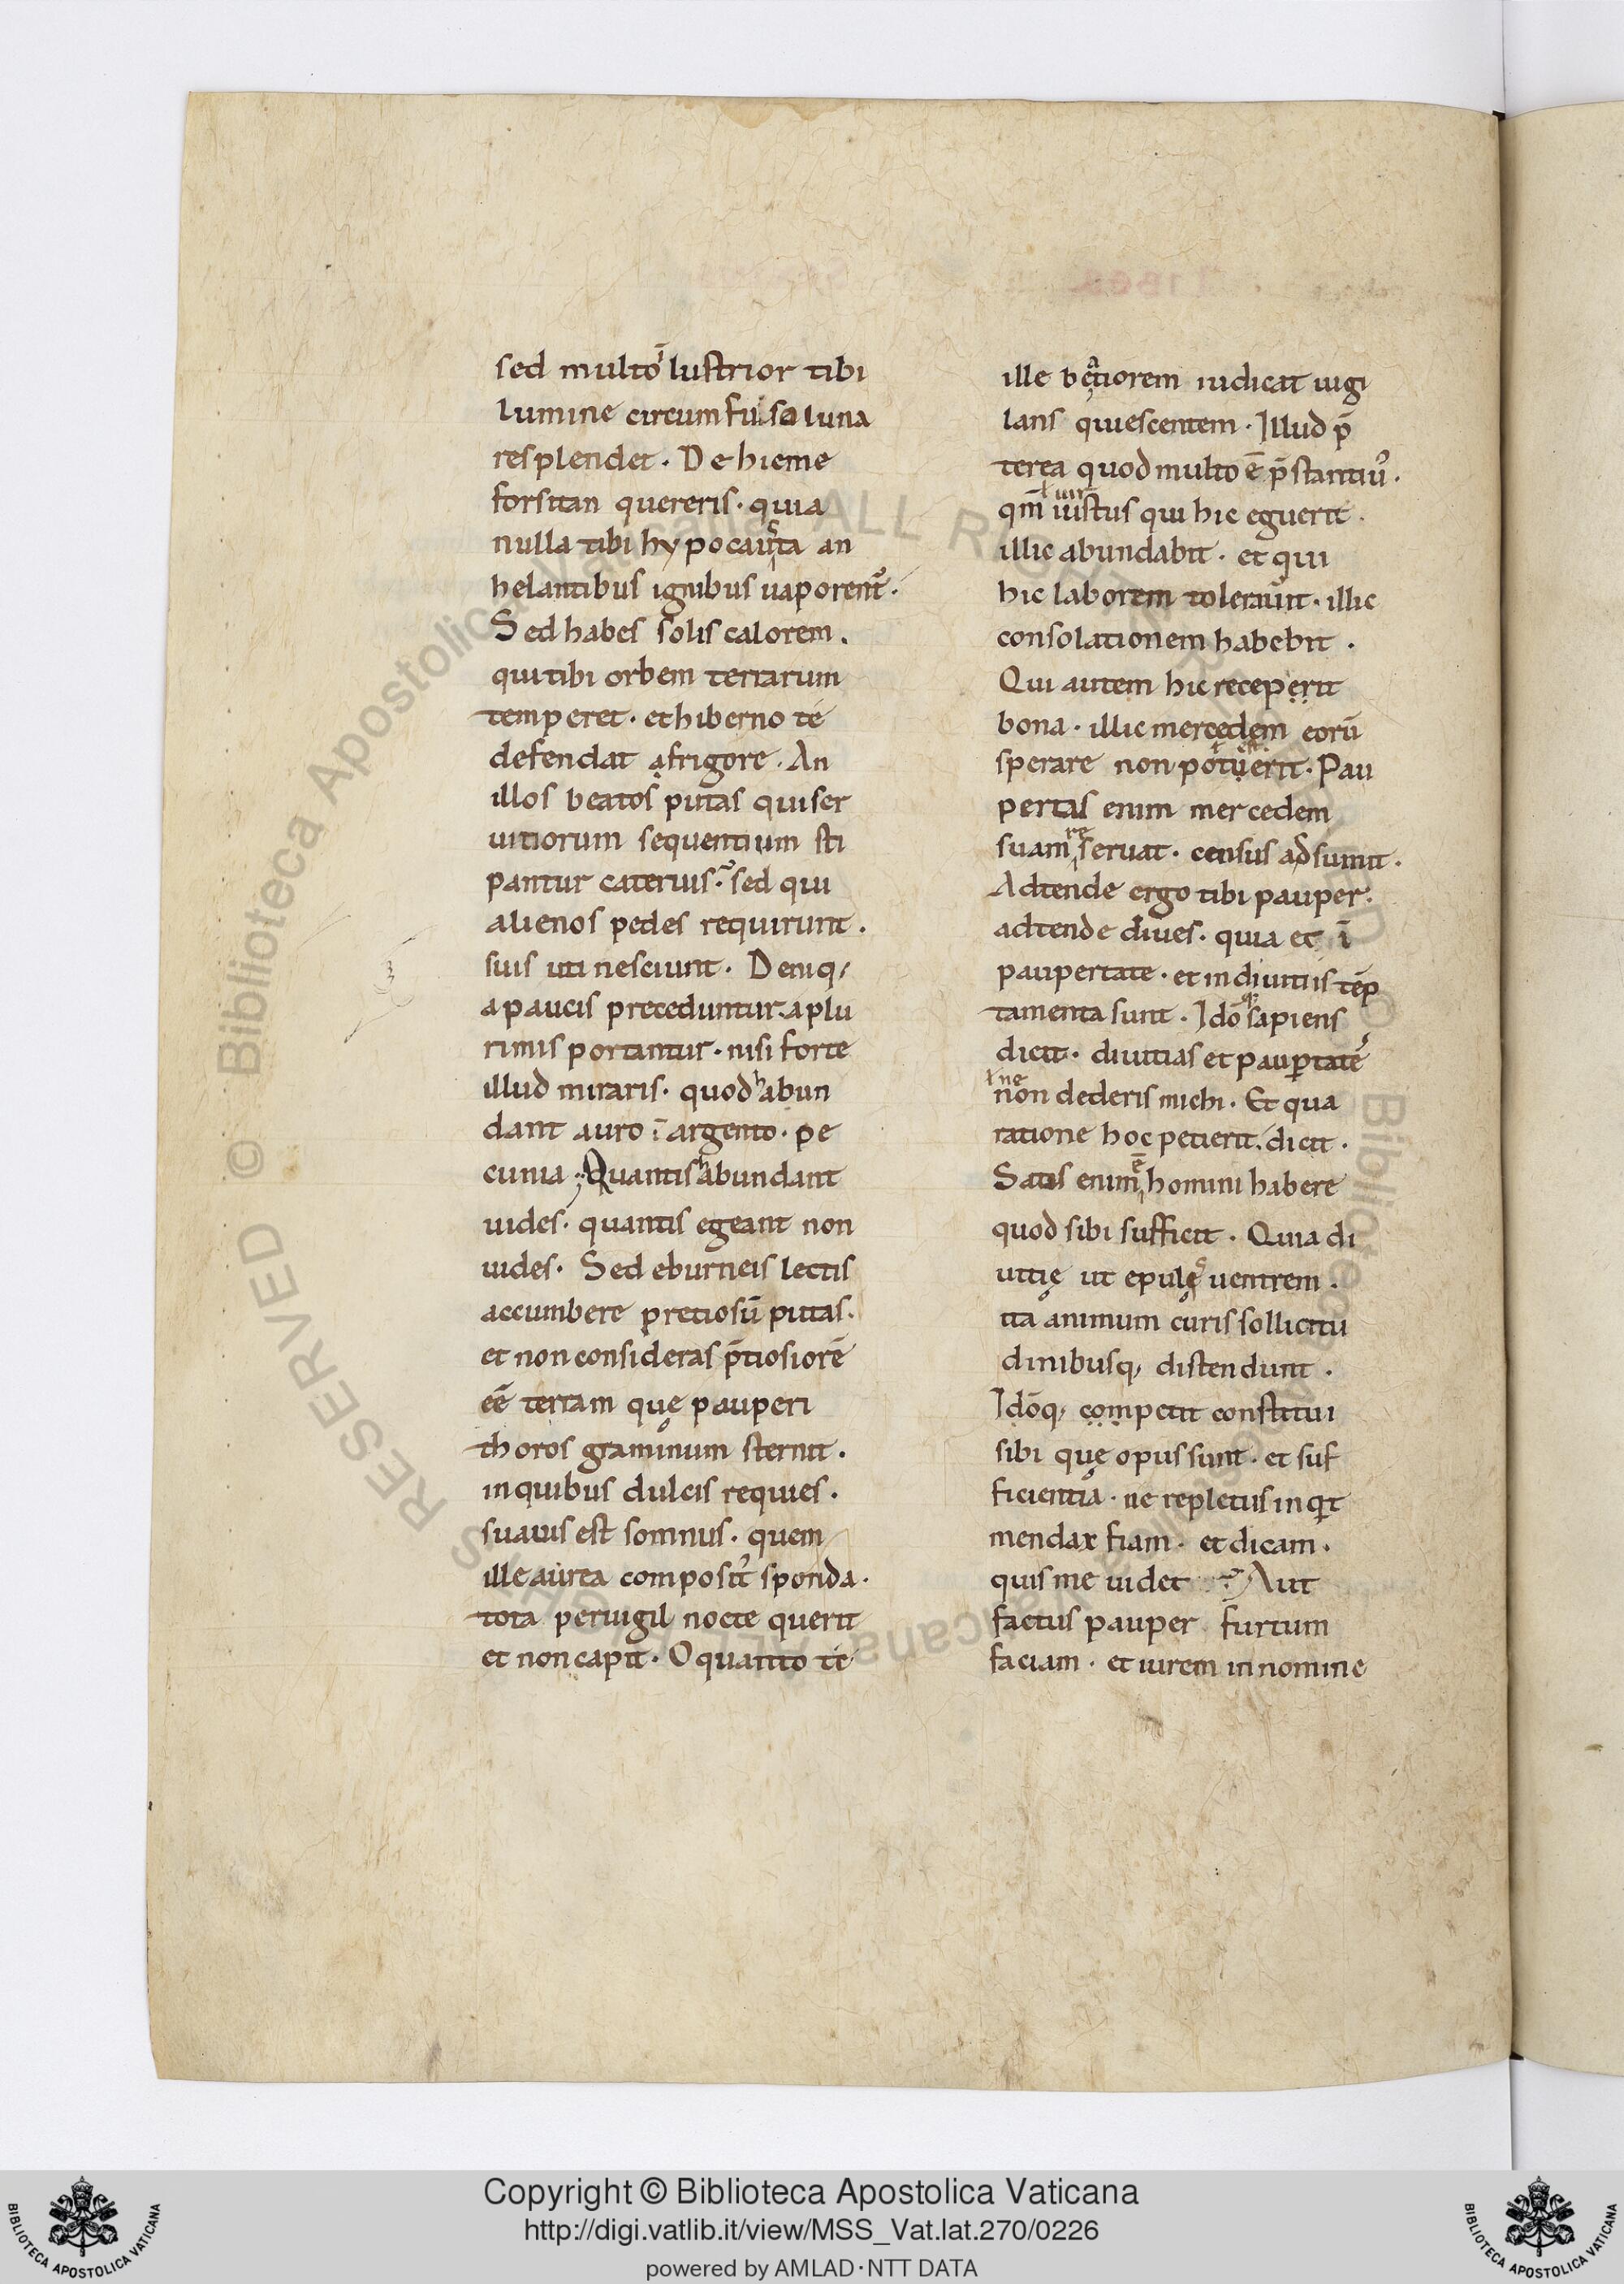 sed multo ĩlustrior tibi
lumine circumfusa luna
resplendet · De hieme
forsitan quereris · quia
nulla tibi hypocausta an
helantibus ignibus uaporent᷑ ·
Sed habes solis calorem .
qui tibi orbem terrarum
temperet · et hiberno te
defendat a frigore · An
illos beatos putas qui ser
uitiorum sequentium sti
pantur cateruis · sed qui
alienos pedes requirunt .
suis uti nesciunt · Deniq,
a paucis preceduntur · a plu
rimis portantur · nisi forte
illud miraris · quod habun
dant auro · argento · pe
cunia · Quantis habundant
uides · quantis egeant non
uides · Sed eburneis lectis
accumbere pretiosū putas ·
et non consideras p̄tiosiorē
eē terram quę pauperi
thoros graminum sternit .
in quibus dulcis requies .
suauis est somnus · quem
ille aurea composit᷑ sponda ·
tota peruigil nocte querit
et non capit · O quanto te
ille beatiorem iudicat uigi
lans quiescentem · Illud p̄
terea quod multo ē p̄stantiu᷒ ·
qm̄ iustus qui hic eguerit ·
illic abundabit · et qui
hic laborem tolerauit · illic
consolationem habebit .
Qui autem hic receperit
bona · illic mercedem eorū
sperare non potuerit · Pau
pertas enim mercedem
suam reseruat · census adsumit .
Adtende ergo tibi pauper ·
adtende diues · quia et ī
paupertate · et in diuitiis tēp
tamenta sunt · Idō sapiens
dicit · diuitias et paup̱tatē
ł ne
non dederis michi · Et qua
ratione hoc petierit · dicit .
Satis enim ē homini habere
quod sibi sufficit · Quia di
uitię ut epulę uentrem .
ita animum curis sollicitu
dinibusq, distendunt .
Idōq, competit constitui
sibi quę opus sunt · et suf
ficientia · ne repletus inquit
mendax fiam · et dicam .
quis me uidet · Aut
factus pauper furtum
faciam · et iurem in nomine
© Biblioteca Apostolica Vaticana ALL RIGHTS RESERVED
Copyright © Biblioteca Apostolica Vaticana
http://digi.vatlib.it/view/MSS_Vat.lat.270/0226
powered by AMLAD·NTT DATA
BIBLIOTECA APOSTOLICA VATICANA
BIBLIOTECA APOSTOLICA VATICANA